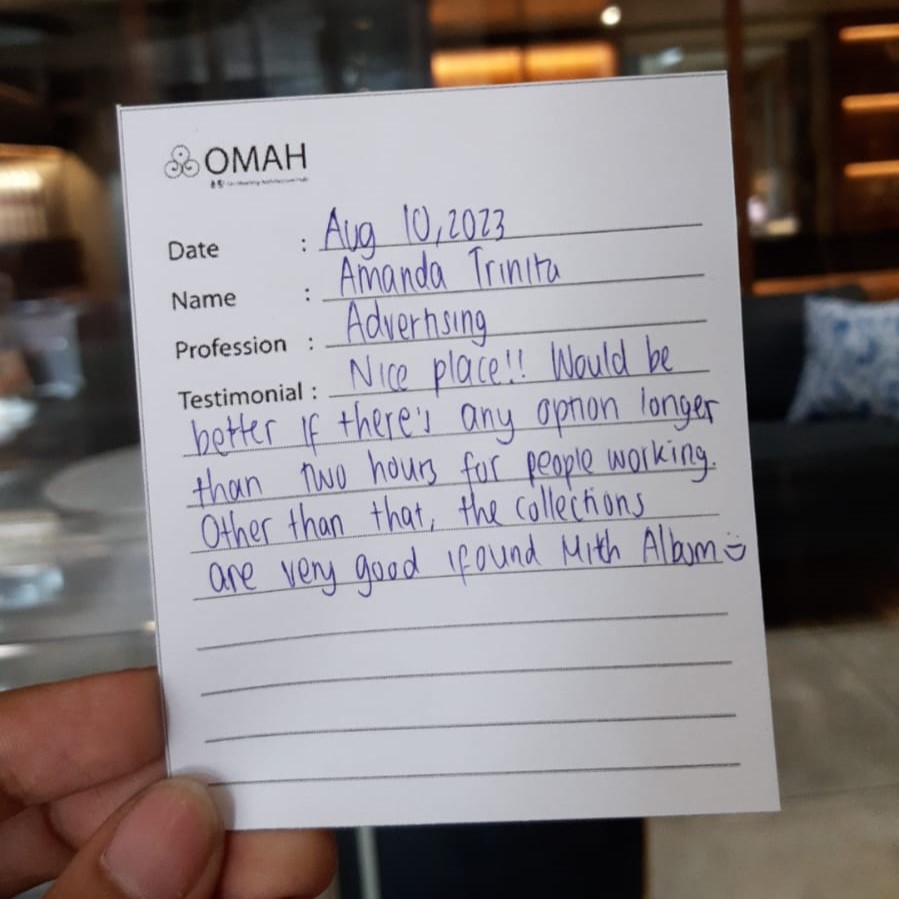 OMAH
Date : Aug 10, 2023
Name : Amanda Trinita
Profession : Advertising
Testimonial : Nice place!! Would be
better if there's any option longer
than two hours for people working.
Other than that, the collections
are very good ifound Mith Album